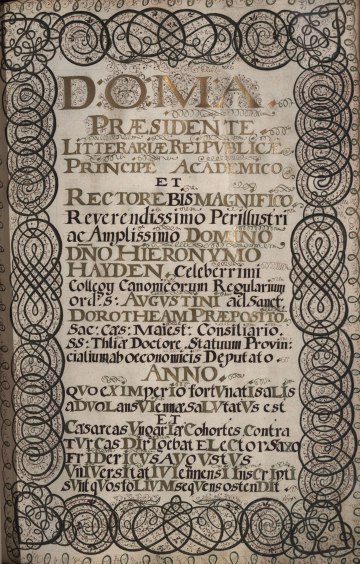 D.O.M.A.
PRÆSIDENTE
LITTERARIÆ REIPUBLICÆ
PRINCIPE ACADEMICO
ET
RECTORE BISMAGNIFICO
Reverendissimo Perillustri
ac Amplissimo DOMINO
DNO HIERONYMO
HAYDEN, Celeberrimi
Collegij Canonicorum Regularium
ord: S: AUGUSTINI ad Sanct.
DOROTHEAM PRÆPOSITO
Sac: Cæs: Maiest: Consiliario.
SS: Thliæ Doctore, Statuum Provin-
cialium ab oeconomicis Deputato.
ANNO.
QUO EX IMPERIO fortUnatIs aLIs
aDVoLans VIennæ saLVtatUs est
ET
Cæsareas VngarIæ Cohortes Contra
TVrCas DIrIgebat ELeCtor Saxo
FrIDerICVs AVgVstVs
VnIVersItatI VIennensI InsCrIptI
sVnt qVos foLIVM seqVens ostenDIt.